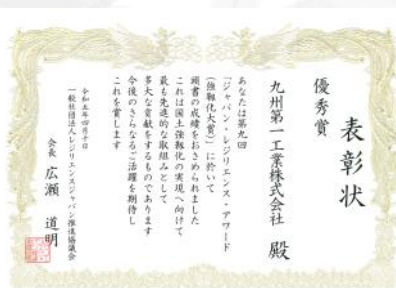 表彰状
優秀賞
九州第一工業株式会社 殿
あなたは第九回
「ジャパン・レジリエンス・アワード
(強靱化大賞)」に於いて
頭書の成績をおさめられました
これは国土強靱化の実現へ向けて
最も先進的な取組みとして
多大な貢献をするものであります
今後のさらなるご活躍を期待し
これを賞します
令和五年四月十日
一般社団法人レジリエンスジャパン推進協議会
会長 広瀬 道明